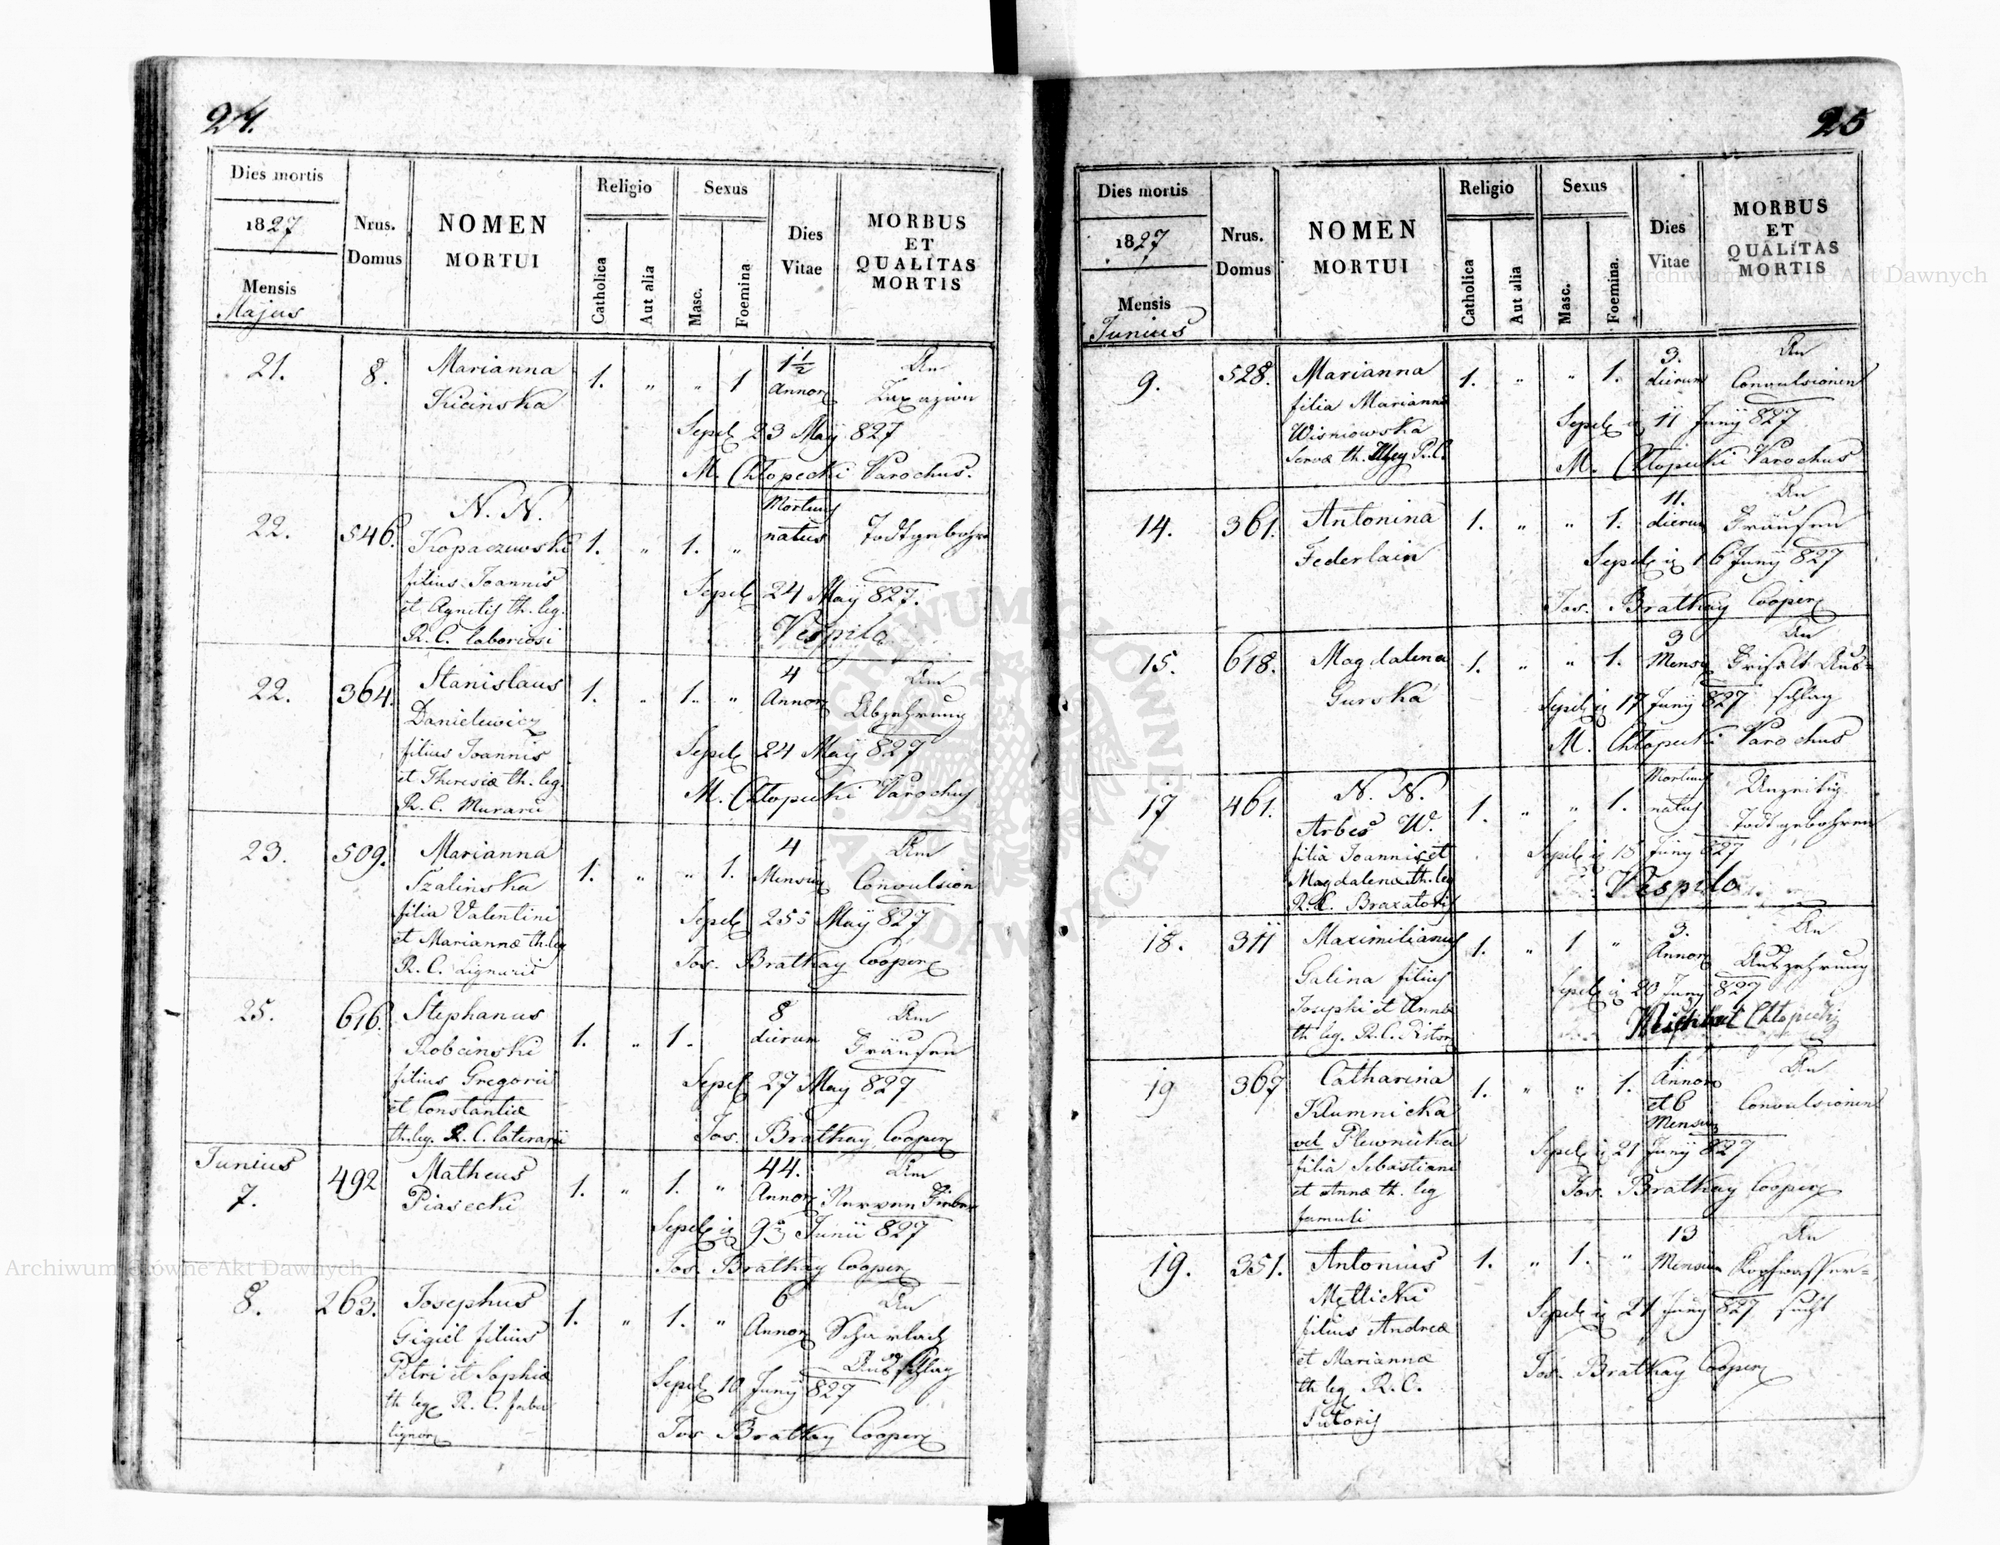 24.
Dies mortis
1827
Mensis
Majus
Nrus.
Domus
NOMEN
MORTUI
Religio
Catholica
Aut alia
Sexus
Masc.
Foemina
Dies
Vitae
MORBUS
ET
QUALITAS
MORTIS
21.
8.
Marianna
Kicinska
1.
"
"
1
1 1/2
Annor
An
Sepel 23 Maÿ 827
M. Chłopecki Parochus.
22.
546.
N. N.
Kopaczewski
filius Joannis
et Agnetis th. leg.
R. C. laboriosi
1.
"
1.
"
Mortuus
natus
Todtgebohren
Sepel 24 Maÿ 827.
Vespilo
22.
364.
Stanislaus
Danielewicz
filius Joannis
et Theresiæ th. leg.
R. C. Murarii
1.
"
1.
"
4
Annor
An
Abzehrung
Sepel 24 Maÿ 827
M. Chłopecki Parochus
23.
509.
Marianna
Szalinska
filia Valentini
et Mariannæ th. leg
R. C. Lignarii
1.
"
"
1.
4
Mensium
An
Convulsion
Sepel 255 Maÿ 827
Jos. Brathay Cooper
25.
616.
Stephanus
Robcinski
filius Gregorii
et Constantiæ
th. leg. R. C. laterarii
1.
"
1.
8
dierum
An
Fräusen
Sepel 27 May 827
Jos. Brathay Cooper
Junius
7.
492
Matheus
Piasecki
1.
"
1.
"
44.
Annor
An
Nerven Fieber
Sepel 9 Junii 827
Jos. Brathay Cooper
8.
263.
Josephus
Gigiel filius
Petri et Sophiæ
th leg R. C. fabri
lignor
1.
"
1.
"
6
Annor
An
Scharlach
Ausschlag
Sepel 10 Junÿ 827
Jos Brathay Cooper
25
Dies mortis
1827
Mensis
Junius
Nrus.
Domus
NOMEN
MORTUI
Religio
Catholica
Aut alia
Sexus
Masc.
Foemina.
Dies
Vitae
MORBUS
ET
QUALITAS
MORTIS
9.
528.
Marianna
filia Mariannæ
Wisniowska
Servæ th. R. C.
1.
"
"
1.
3.
dierum
An
Convulsionen
Sepel 11 Junÿ 827
M. Chłopecki Parochus
14.
361.
Antonina
Federlain
1.
"
"
1.
11.
dierum
An
Fräusen
Sepel 16 Junÿ 827
Jos. Brathay Cooper
15.
618.
Magdalena
Gurska
1.
"
"
1.
3
Mensi
An
Aus=
schlag
Sepel 17 Junÿ 827
M. Chłopecki Parochus
17
461.
N. N.
Arbes W.
filia Joannis et
Magdalenæ th. leg
R. C. Braxatoris
1.
"
1.
Mortuus
natus
Unzeitig
Todtgebohren
Sepel 15 Junÿ 827
Vespilo
18.
311
Maximilianus
Galina filius
Josephi et Annæ
th leg. R. C. Pistor
1.
"
1
"
3.
Annor
An
Auszehrung
Sepel 20 Junÿ 827
Chłopecki
19
367
Catharina
Klumnicka
vel Plewnicka
filia Sebastiani
et Annæ th. leg
famuli
1.
"
"
1.
1.
Annor
et 6
Mensium
An
Convulsionen
Sepel 21 Junÿ 827
Jos. Brathay Cooper
19.
351.
Antonius
Mętlicki
filius Andreæ
et Mariannæ
th leg R. C.
Sutoris
1.
"
1.
"
13
Mensium
An
Kopfwasser=
sucht
Sepel 21 Junÿ 827
Jos. Brathay Cooper
Archiwum Główne Akt Dawnych
Archiwum Główne Akt Dawnych
ARCHIWUM GŁÓWNE
AKT DAWNYCH